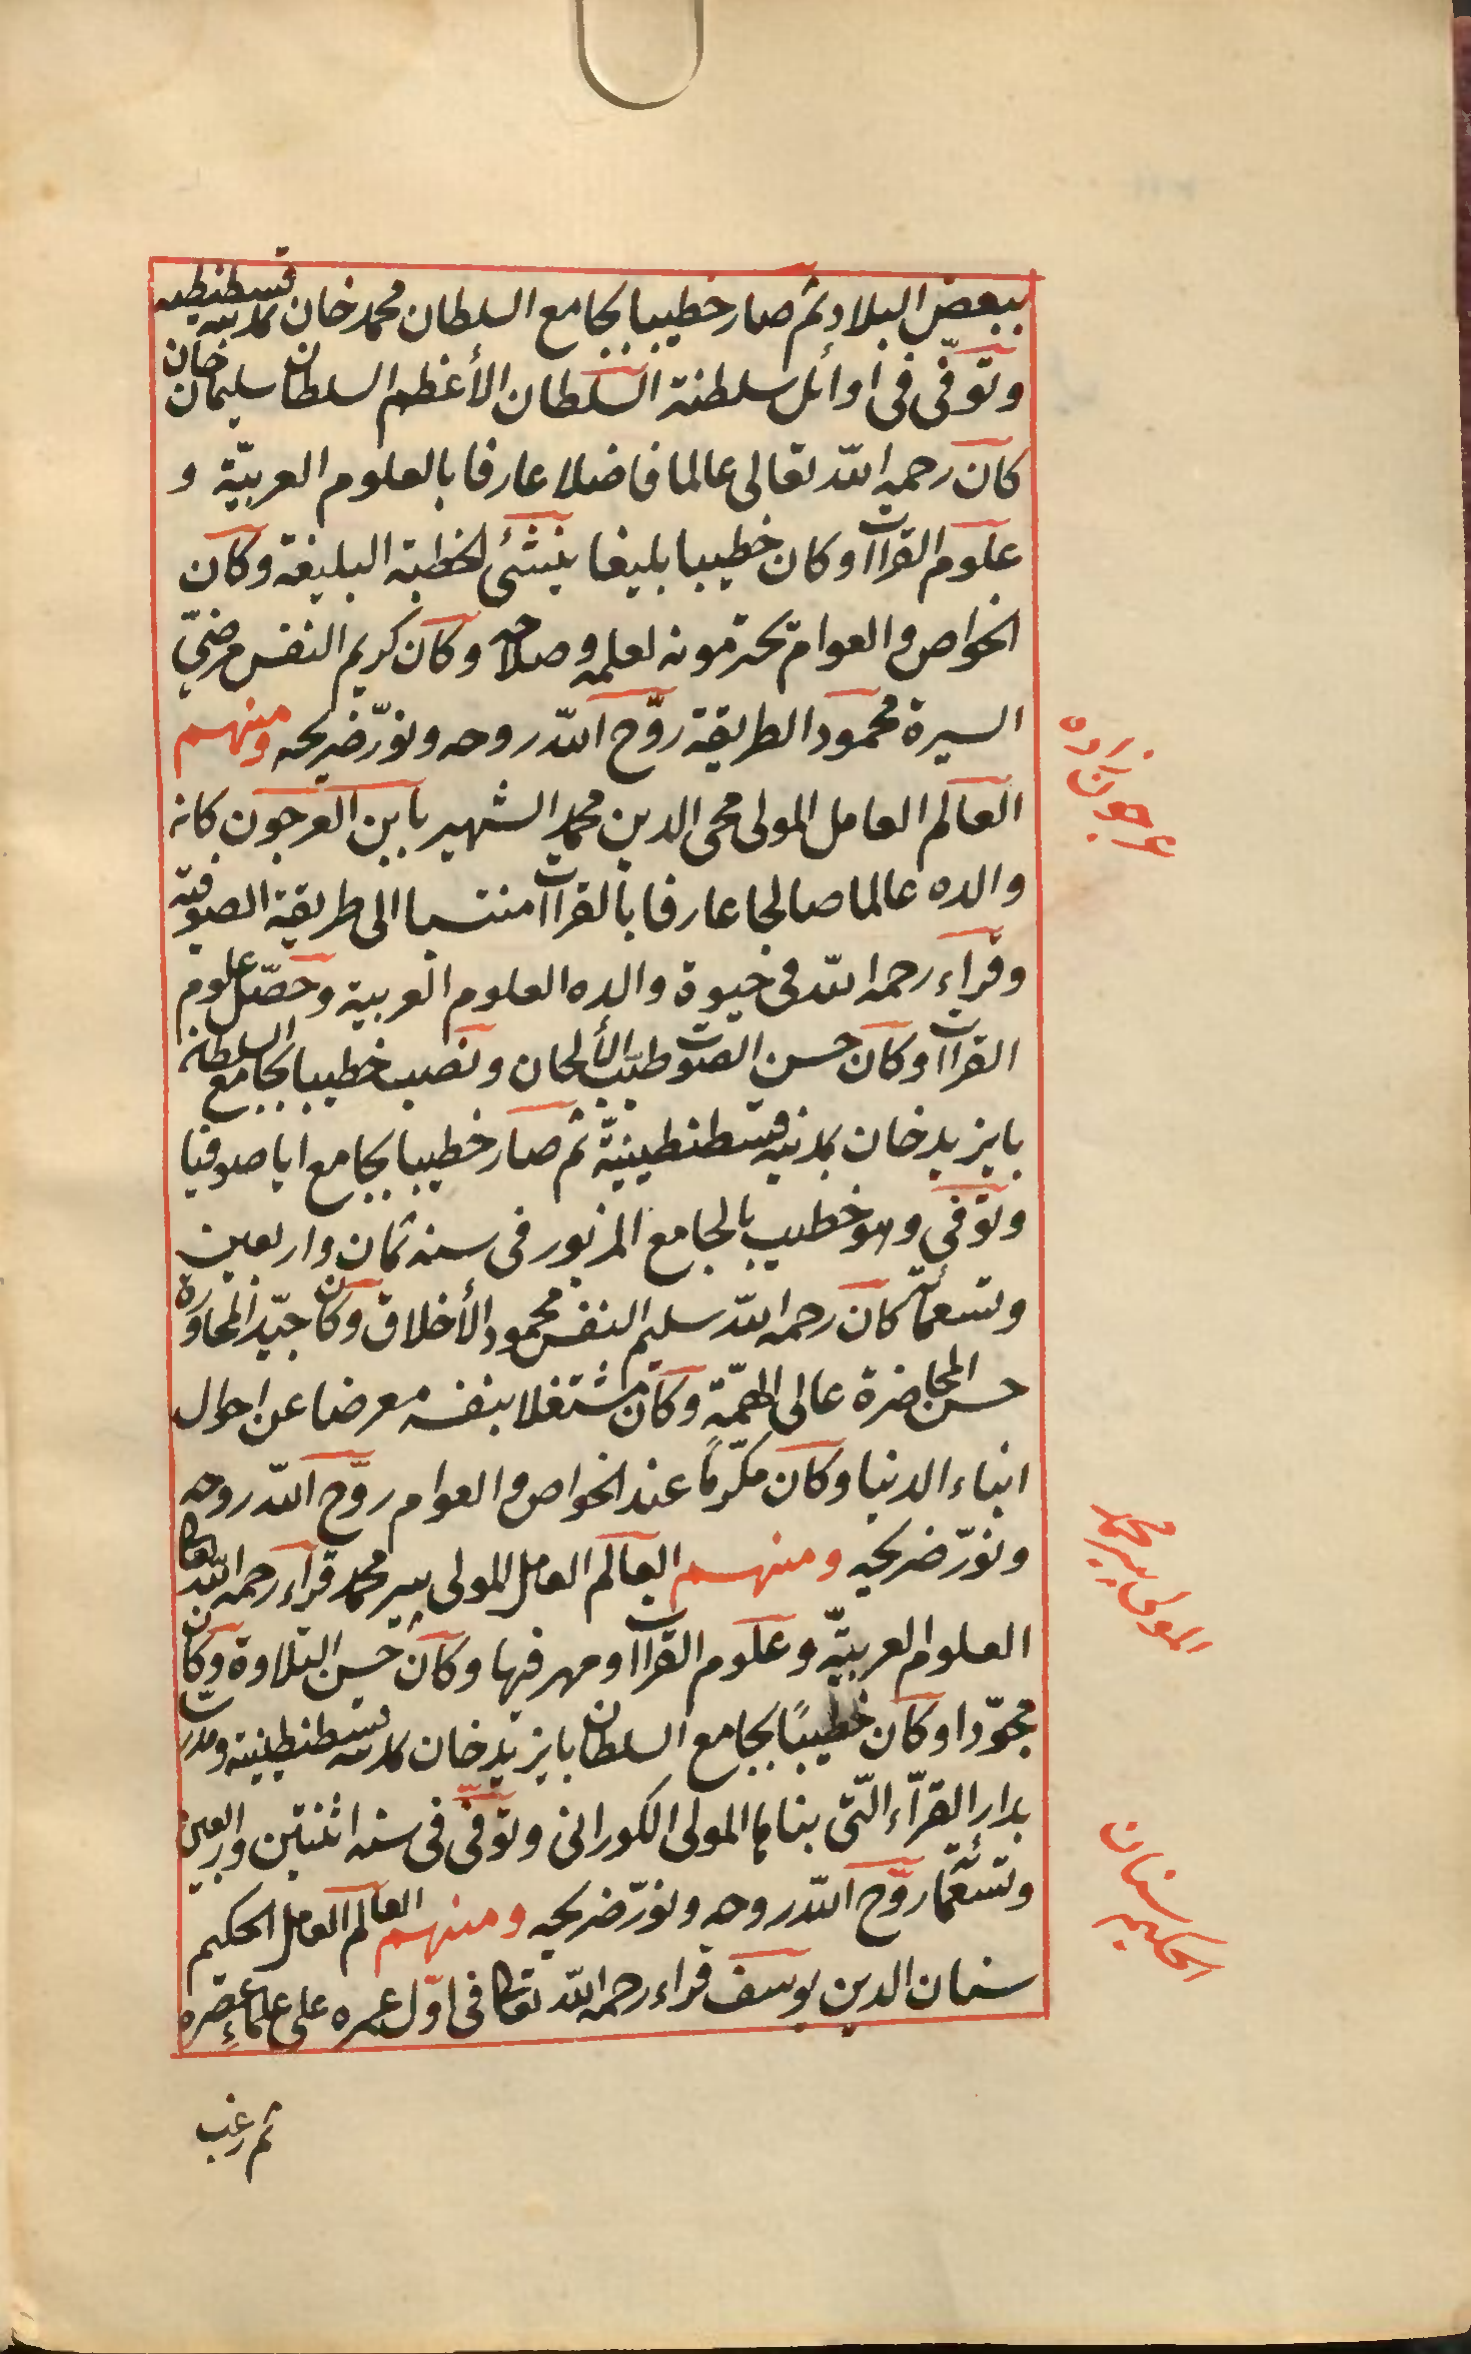 ببعض البلاد ثم صار خطيبا بجامع السلطان محمد خان بمدينة قسطنطينيه
وتوفّى فى اوائل سلطنة السلطان الأعظم السلطان سليمان خان
كان رحمه الله تعالى عالما فاضلا عارفا بالعلوم العربيّة و
علوم القراآت وكان خطيبا بليغا ينشئ الخطبة البليغة وكان
الخواص والعوامّ يحترمونه لعلمه وصلاحه وكان كريم النفس مرضىّ
السيرة محمود الطريقة روّح الله روحه ونوّر ضريحه ومنهم
عرجون زاده
العالم العامل المولى محى الدين محمد الشهير بابن العرجون كان
والده عالما صالحا عارفا بالقراآت منتسبا الى طريقة الصوفيّه
وقراء رحمه الله فى حيوة والده العلوم العربية وحصّل علوم
القراآت وكان حسن الصوت طيّب الألحان ونصب خطيبا بجامع السلطان
بايزيد خان بمدينة قسطنطينيّة ثم صار خطيبا بجامع اياصوفيا
وتوفى وهو خطيب بالجامع المزبور فى سنة ثمان واربعين
وتسعمائة كان رحمه الله سليم النفس محمود الأخلاق وكان جيّد المحاورة
حسن المحاضرة عالى الهمّة وكان مشتغلا بنفسه معرضا عن احوال
ابناء الدنيا وكان مكرّماً عند الخواص والعوام روّح الله روحه
المولى پير محمد
ونوّر ضريحه ومنهم العالم العامل المولى پير محمد قراء رحمه الله تعالى
العلوم العربيّة وعلوم القراآت ومهر فيها وكان حسن التلاوة وكان
مجوّدا وكان خطيبًا بجامع السلطان بايزيد خان بمدينة قسطنطينية ومدرّسا
بدار القرّاء الّتى بناها المولى الكورانى وتوفّى فى سنة اثنتين واربعين
الحكيم سنان
وتسعمائة روّح الله روحه ونوّر ضريحه ومنهم العالم العامل الحكيم
سنان الدين يوسف قراء رحمه الله تعالى فى اوّل عمره على علماء عصره
ثم رغب